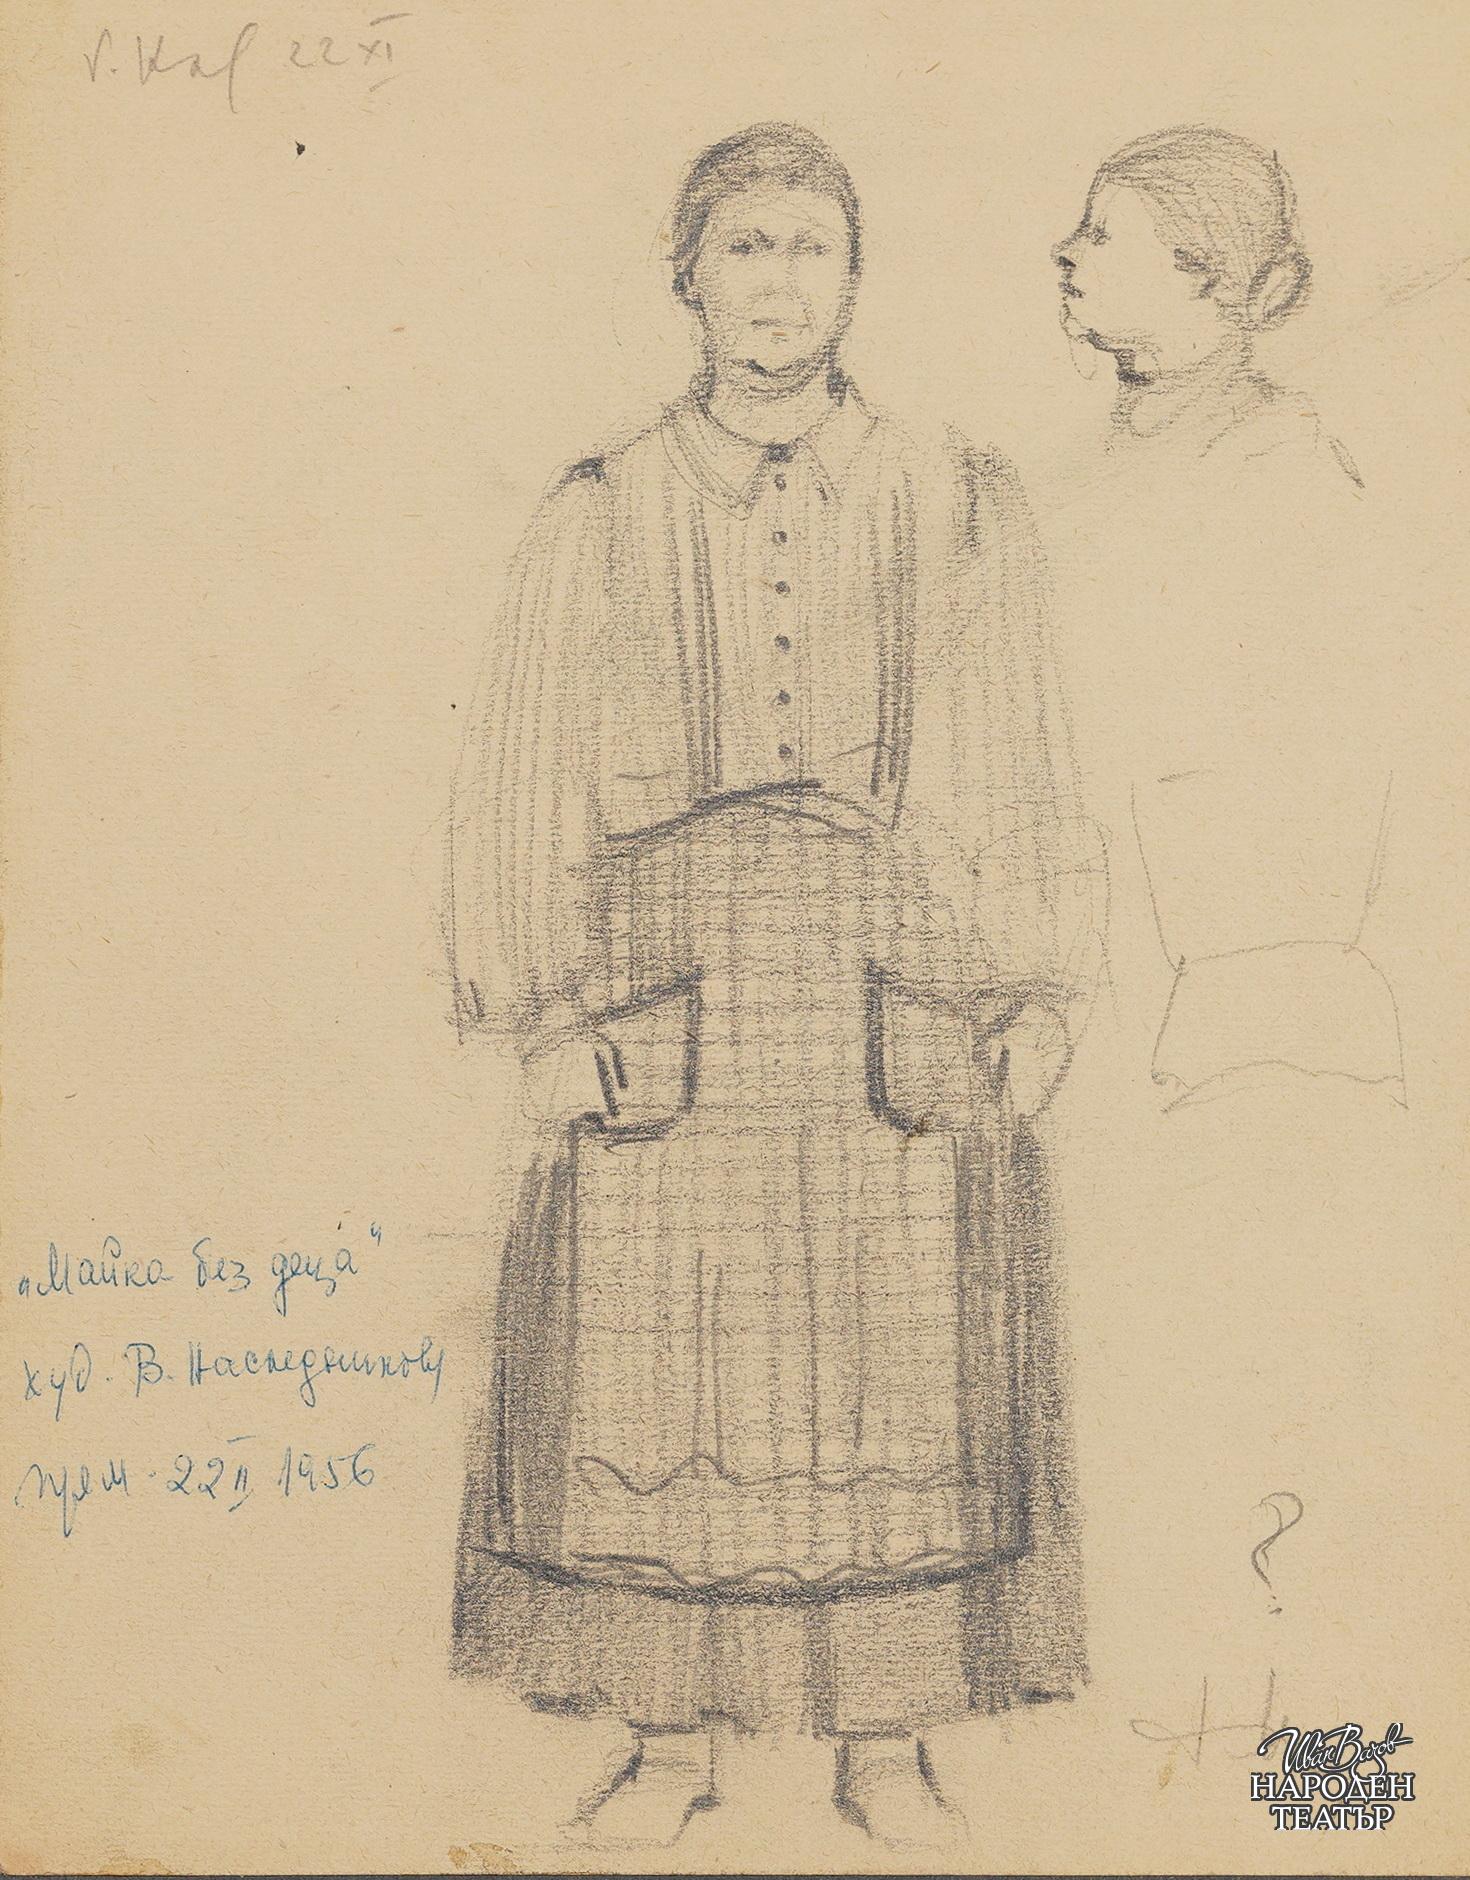 22 XI
„Майка без деца"
худ. В. Наследников
прем. 22 II 1956
?
Иван Вазов
НАРОДЕН
ТЕАТЪР